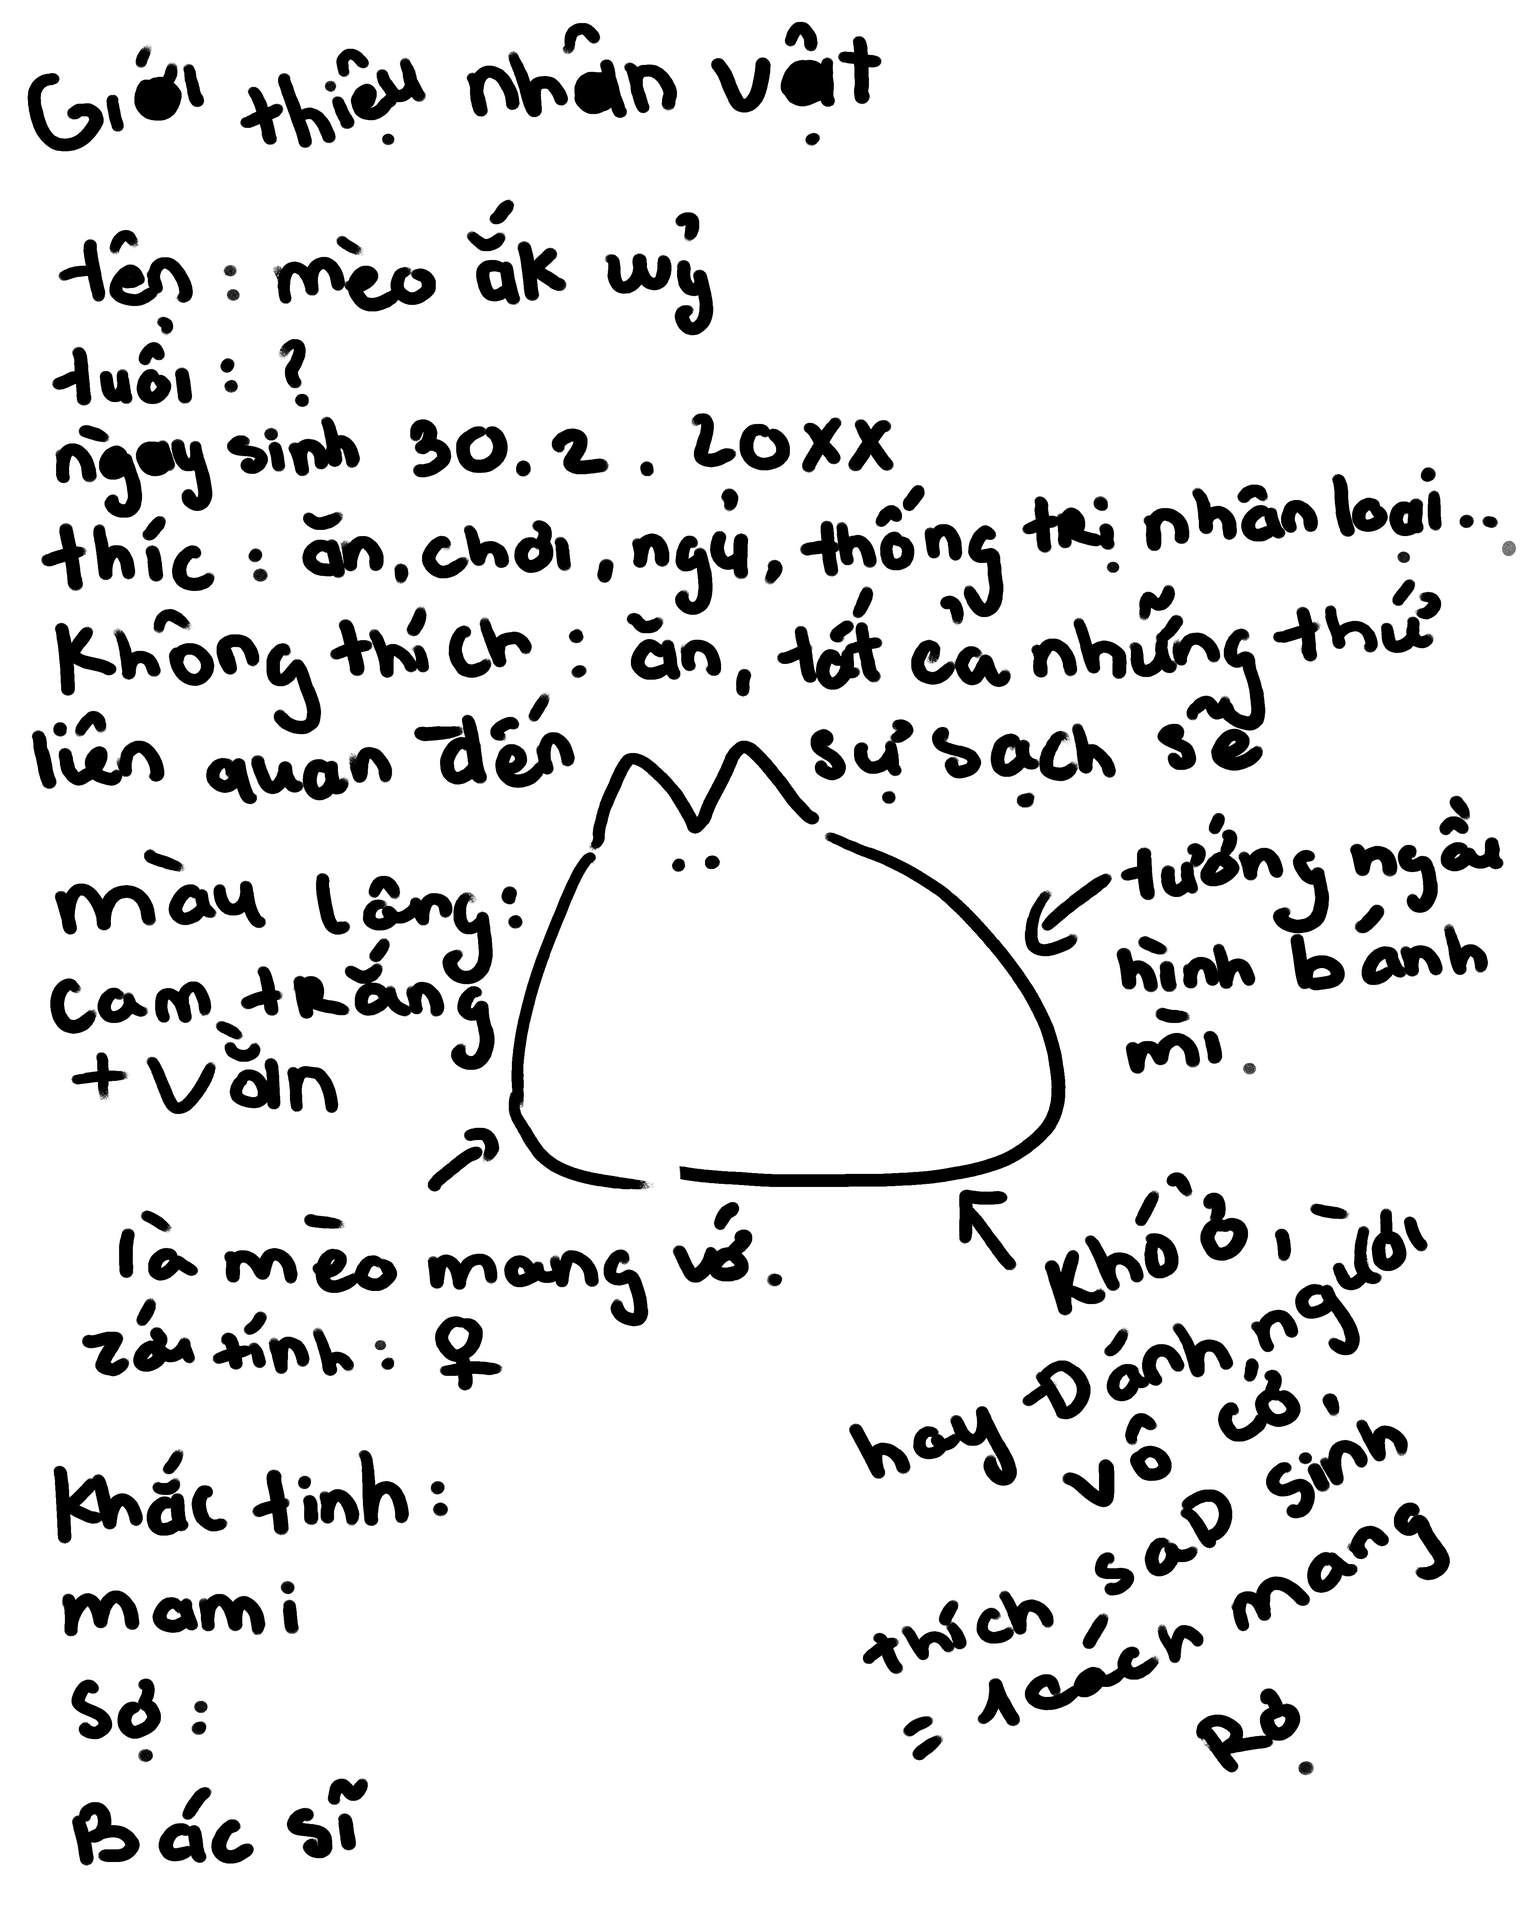 Giới thiệu nhân vật
tên : mèo ắk wỷ
tuổi : ?
ngày sinh 30.2.20xx
thíc : ăn, chơi, ngủ, thống trị nhân loại...
Không thích : ăn, tất cả những thứ
liên quan đến sự sạch sẽ
màu lông:
cam trắng
+ vằn
tướng ngồi
hình bánh
mì.
là mèo mang vớ.
zái tính: ♀
Khắc tinh:
mami
Sợ:
Bác sĩ
Khó ở,
hay Đánh người
vô cớ,
thích saD sinh
= 1 cách mang
Rợ